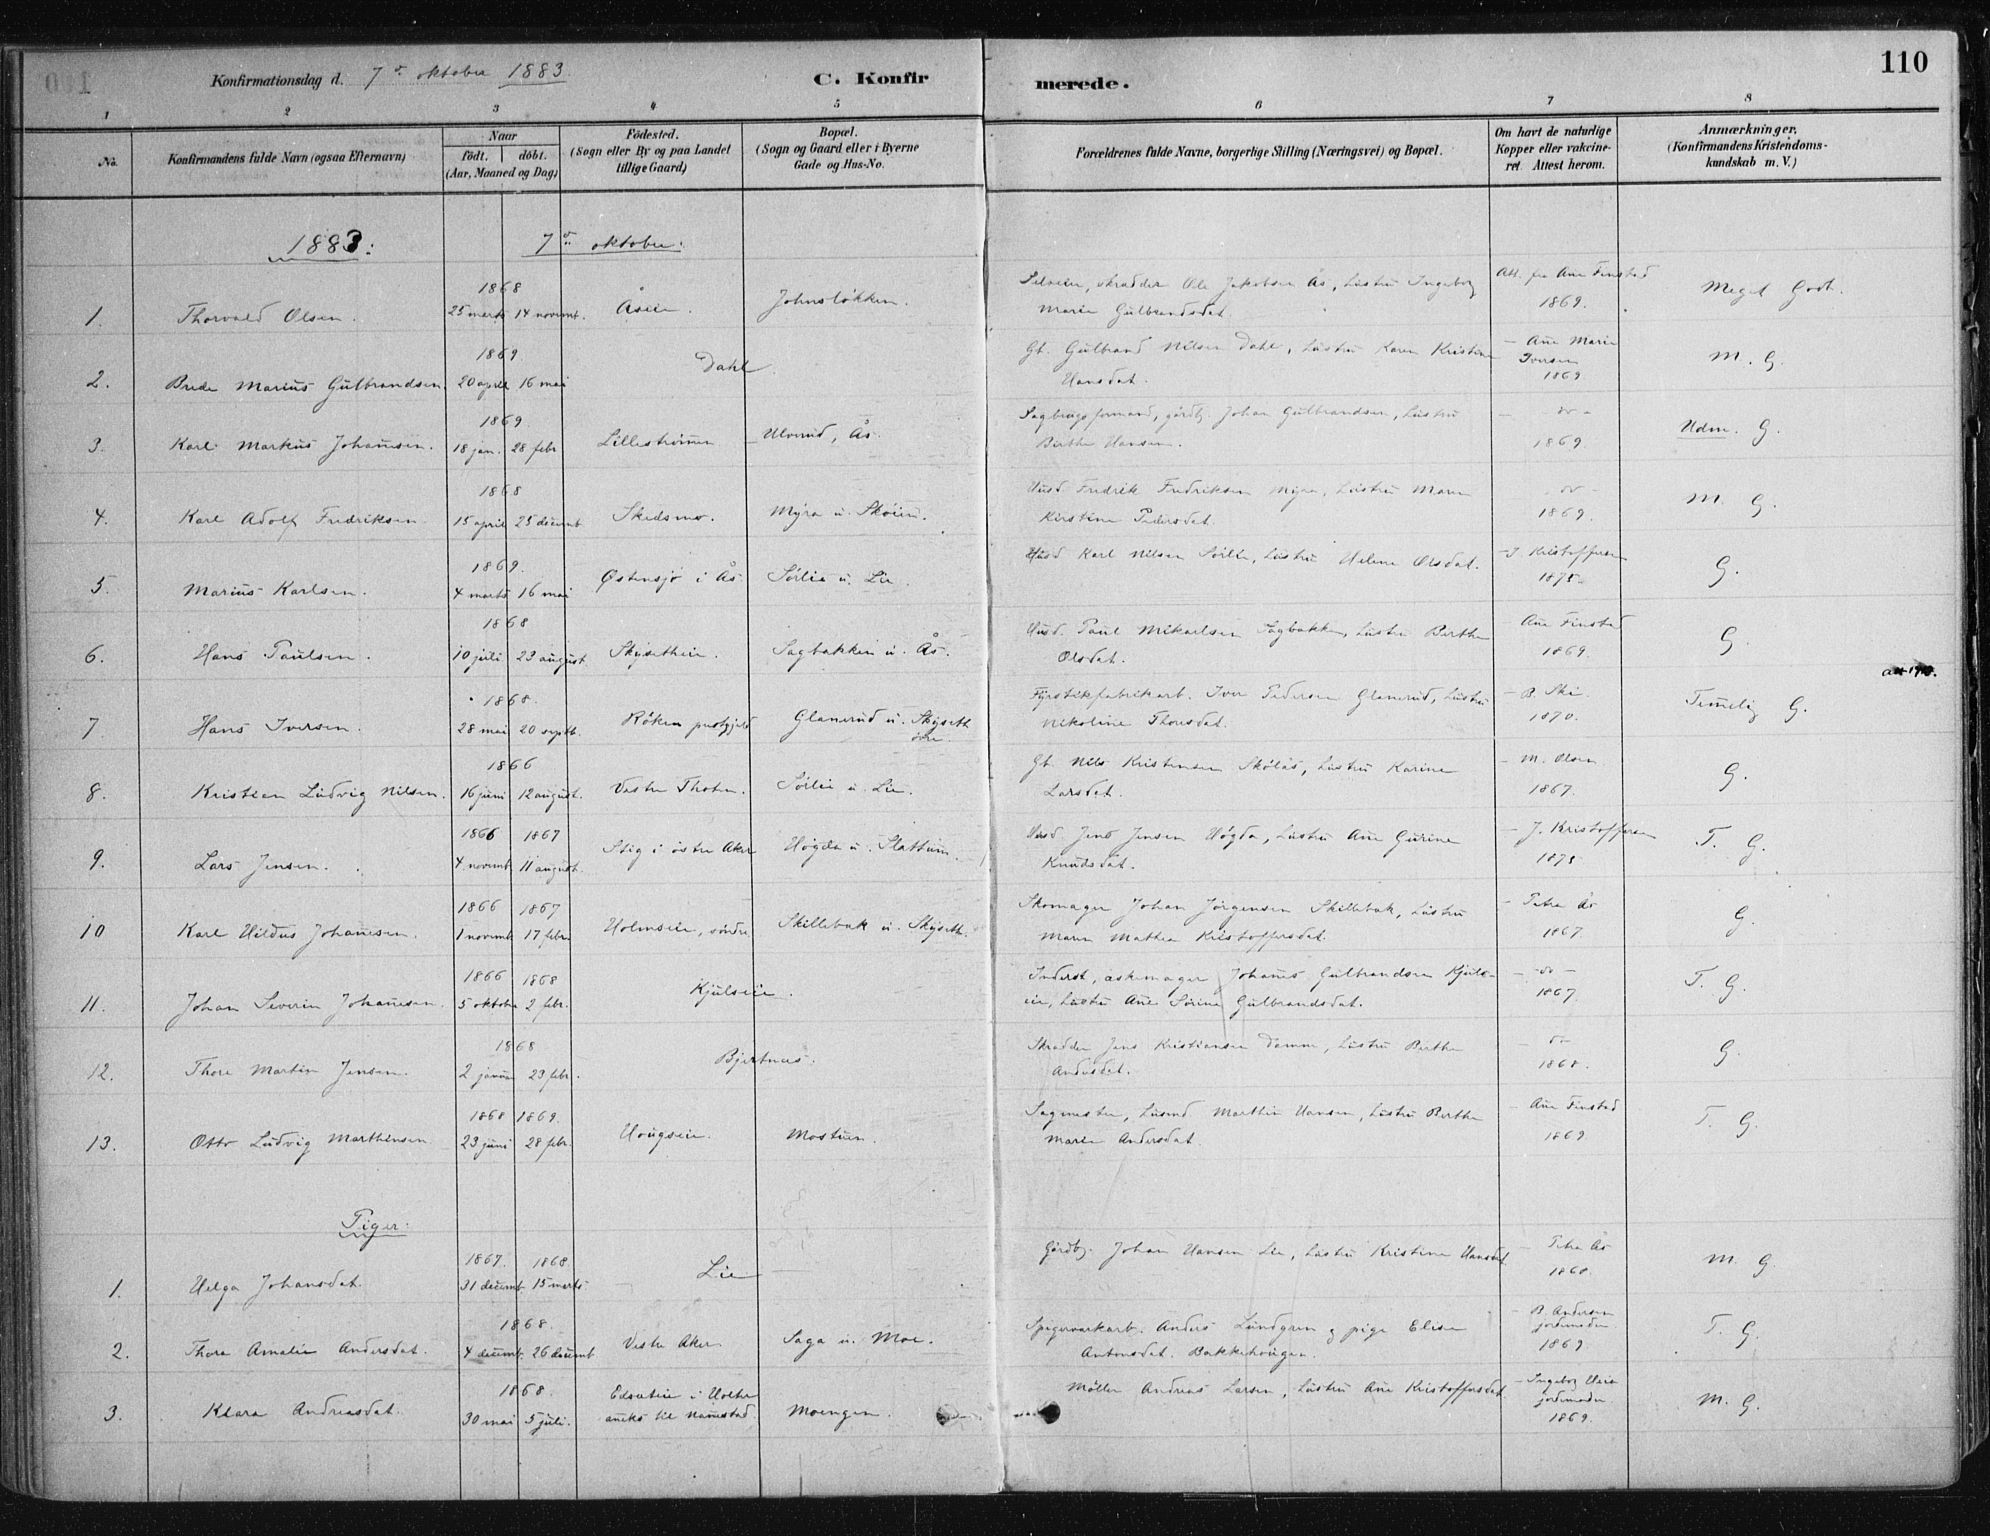 110
Konfirmationsdag d. 7de oktober 1883. C. Konfirmerede.
1 2 3 4 5 6 7 8
No. Konfirmandens fulde Navn (ogsaa Efternavn) Naar födt. döbt. (Aar, Maaned og Dag) Födested. (Sogn eller By og paa Landet tillige Gaard) Bopæl. (Sogn og Gaard eller i Byerne Gade og Hus-No. Forældrenes fulde Navne, borgerlige Stilling (Næringsvei) og Bopæl. Om havt de naturlige Kopper eller vakcineret. Attest herom. Anmærkninger. (Konfirmandens Kristendomskundskab m. V.)
1883: 7de oktober:
1. Thorvald Olsen. 1868 25 marts 14 novemb. Åseie. Johnsløkken. Selveier, skrædder Ole Jakobsen Ås, hustru Ingeborg Marie Gulbrandsdat. Att. fra Ane Finstad 1869. Meget Godt.
2. Brede Marius Gulbrandsen 1869. 20 april 16 mai Dahl. Gb. Gulbrand Nilsen Dahl, hustru Karen Kristine Hansdat. — Ane Marie Iversen 1869. M. G.
3. Karl Markus Johannesen. 1869 18 jan. 28 febr Lillestrømmen Ulverud, Ås. Sagbrugsformand, gårdb. Johan Gulbrandsen, hustru Berthe Hansen. — do — 1869 Udm. G.
4. Karl Adolf Fredriksen. 1868 15 april 25 decemb Skedsmo. Myra u. Skøien. Husd. Fredrik Fredriksen Myra, hustru Maren Kirstine Pedersdat. — do — 1869. M. G.
5. Marius Karlsen. 1869. 4 marts 16 mai Østensjø i Ås. Sørlie u. Lie. Husd Karl Nilsen Sørlie, hustru Helene Olsdat. — J. Kristoffersen 1875. G.
6. Hans Paulsen. 1868 10 juli 23 august. Skyssetheie. Sagbakken u. Ås. Husd. Paul Mikaelsen Sagbakken, hustru Berthe Olsdat. — Ane Finstad 1869. G.
att 1910.
7 Hans Iversen. 1868. 28 mai 20 septb. Röken prestgjeld Glanerud u. Skysseth Fyrstikfabrikarb. Iver Pedersen Glanerud, hustru Nikoline Thoresdat. — B. Ski 1870. Temelig G.
8. Kristian Ludvig Nilsen. 1866 16 juni 12 august. Vestre Thoten. Sørlie u. Lie. Gb. Nils Kristensen Skólås, hustru Karine Larsdat. — M. Olsen 1867. G.
9. Lars Jensen. 1866 1867 4 novemb 11 august. Stig i östre Aker Høgda u. Slattum. Husd. Jens Jensen Høgda, hustru Ane Gurine Knudsdat. — J. Kristoffersen 1875 T. G.
10 Karl Hildus Johannesen. 1866 1867 1 novemb 17 febr. Holmseie, söndre Skillebak u. Skysseth. Skomager Johan Jörgensen Skillebak, hustru Maren Mathea Kristoffersdat. — Petra Ås 1867. G
11. Johan Severin Johannesen. 1866 1868 5 oktober 2 febr. Kjulseie. Inderst, askemager Johannes Gulbrandsen Kjulseie, hustru Ane Sörine Gulbrandsdat. — do — 1867. T. G.
12. Thore Martin Jensen. 1868 2 januar 23 febr. Bjertnæs. Skrædder Jens Kristiansen Damm, hustru Berthe Andersdat. — do 1868. G.
13. Otto Ludvig Marthinsen 1868 1869. 23 juni 28 febr. Hougseie. Mostuen. Sagmester, husmd Marthin Hansen, hustru Berthe Marie Andersdat. — Ane Finstad 1869 T. G.
Piger:
1. Helga Johansdat. 1867. 1868. 31 decemb 15 marts. — Lie — Gårdbr. Johan Hansen Lie, hustru Kristine Hansdat — Petra Ås 1868. M. G
2. Thora Amalie Andersdat. 1868. 4 decemb. 26 decemb Vestre Aker Saga u. Moe. Spigerverkarb. Anders Lundgren & pige Elise Antonsdat. Bakkehougen. — B. Andersen jordmoder 1869 T. G.
3. Klara Andreasdat. 1868. 30 mai 5 juli. Edsateie i Holter aneks til Nannestad Moengen. Møller Andreas Larsen, hustru Ane Kristoffersdat — Ingeborg jordmoder 1869. M. G.